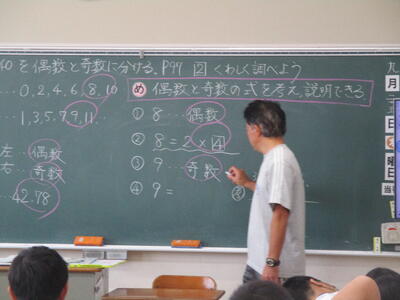 10を偶数と奇数に分ける。P99 図 くわしく調べよう
め 偶数と奇数の式を考え、説明できる。
…0,2,4,6,8,10
…1,3,5,7,9,11…
左…偶数
右…奇数
…42.78
① 8…偶数
② 8=2×4
③ 9…奇数
④ 9=
月
日
曜日